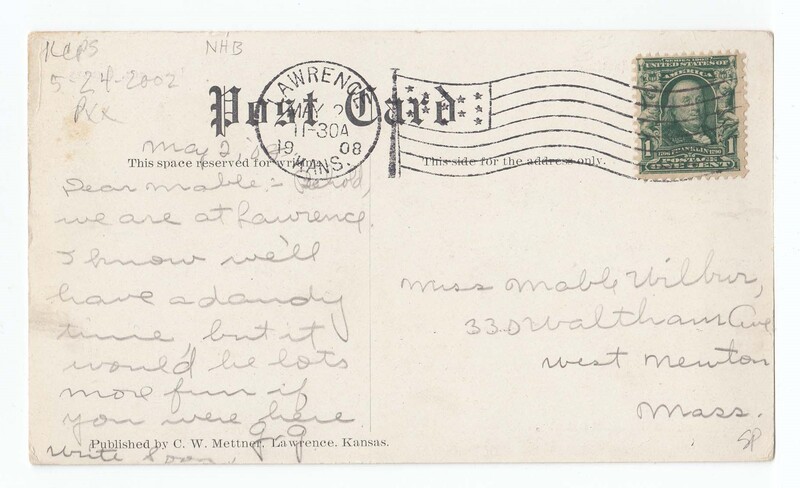 KCPS
NHB
5-24-2002
Post Card
LAWRENCE
MAY 2
11-30A
1908
KANS.
SERIES 1902
UNITED STATES OF
AMERICA
1 FRANKLIN 1
POSTAGE
This space reserved for writing
This side for the address only.
May 2,
Dear Mable:- Behold,
we are at Lawrence.
I know we'll
have a dandy
time, but it
would be lots
more fun if
you were here
G.G.
Write soon.
Published by C. W. Mettner, Lawrence, Kansas.
Miss Mable Wilbur,
330 Waltham Ave
West Newton
Mass.
SP